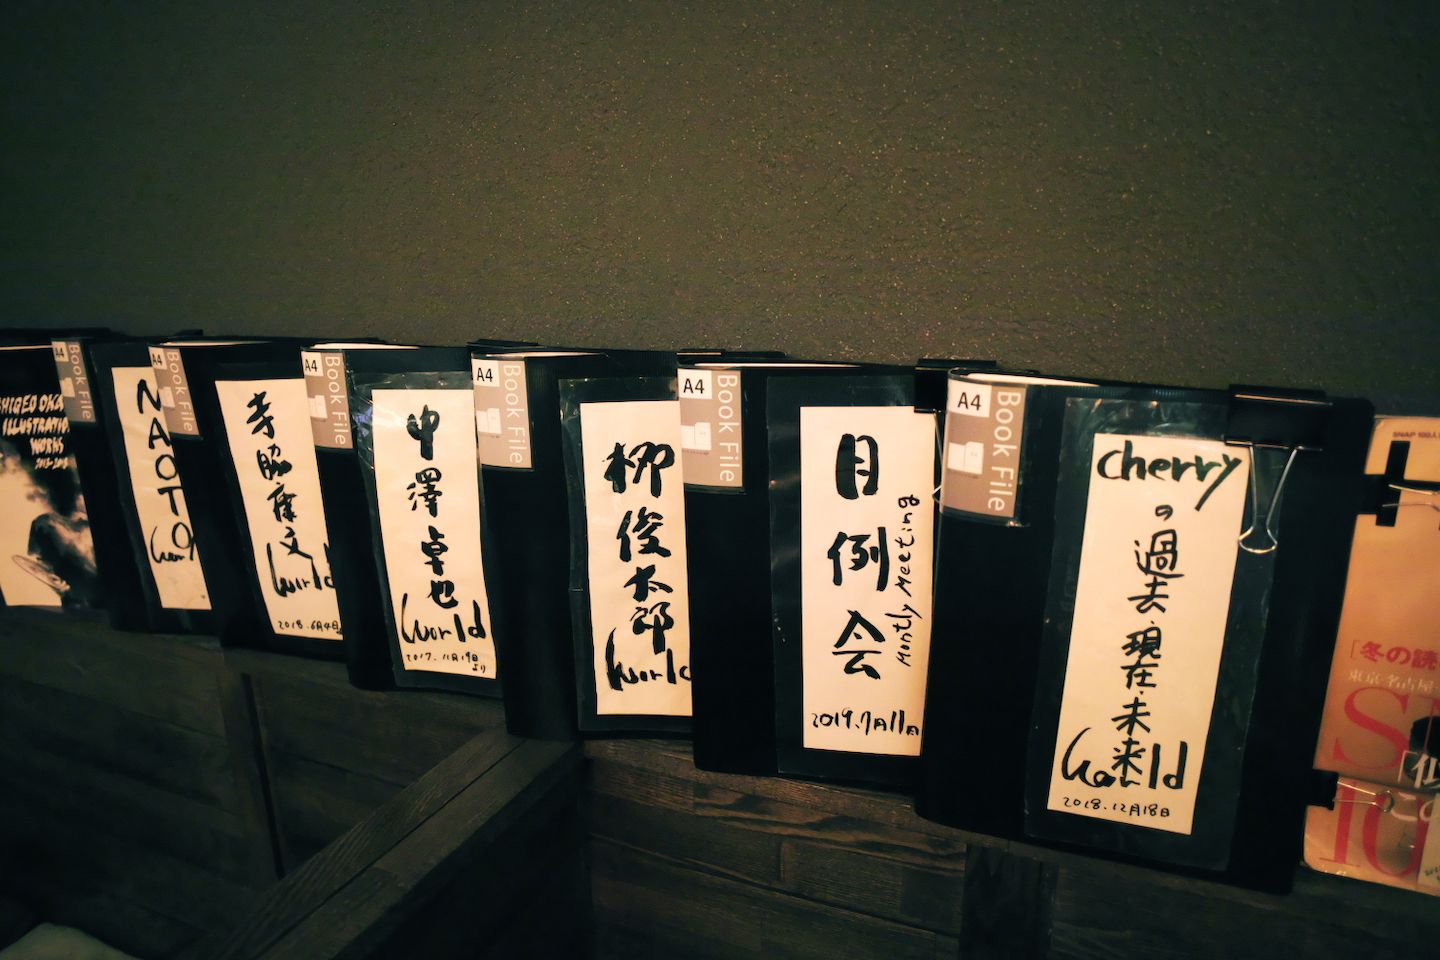 SHIGEO OKA
ILLUSTRATIO
WORKS
A4
Book File
NAOTO
A4
Book File
寺脇康文
World
2018.6月4日
A4
Book File
中澤卓也
World
2017.11月19日
より
A4
Book File
柳俊太郎
World
A4
Book File
月例会
Montly Meeting
2019.7月11日
A4
Book File
cherry
の過去、現在、未来
World
2018.12月18日
SNAP 100人
[冬の読
東京・名古屋・
S
10